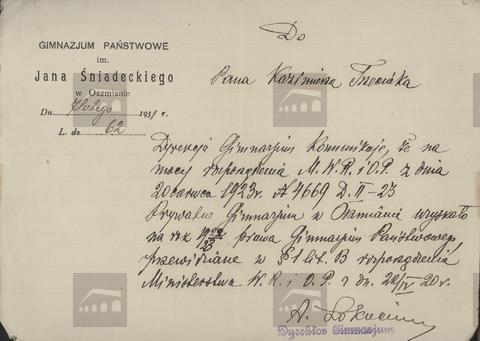 GIMNAZJUM PAŃSTWOWE
im.
Jana Śniadeckiego
w Oszmianie
Dn. 7 lutego 1931 r.
L. dz. 62
Do
Pana Kazimierza Trzeciaka
Dyrekcja Gimnazjum Komunikuje, że na
mocy rozporządzenia M.W.R. i O.P. z dnia
20 czerwca 1923 r. № 4669 D. II-23
Prywatne Gimnazjum w Oszmianie uzyskało
na rok 1922/23 prawa Gimnazjum Państwowego,
przewidziane w § 1 lit. B rozporządzenia
Ministerstwa W.R. i O.P. z dn. 20/IV-20 r.
Dyrektor Gimnazjum